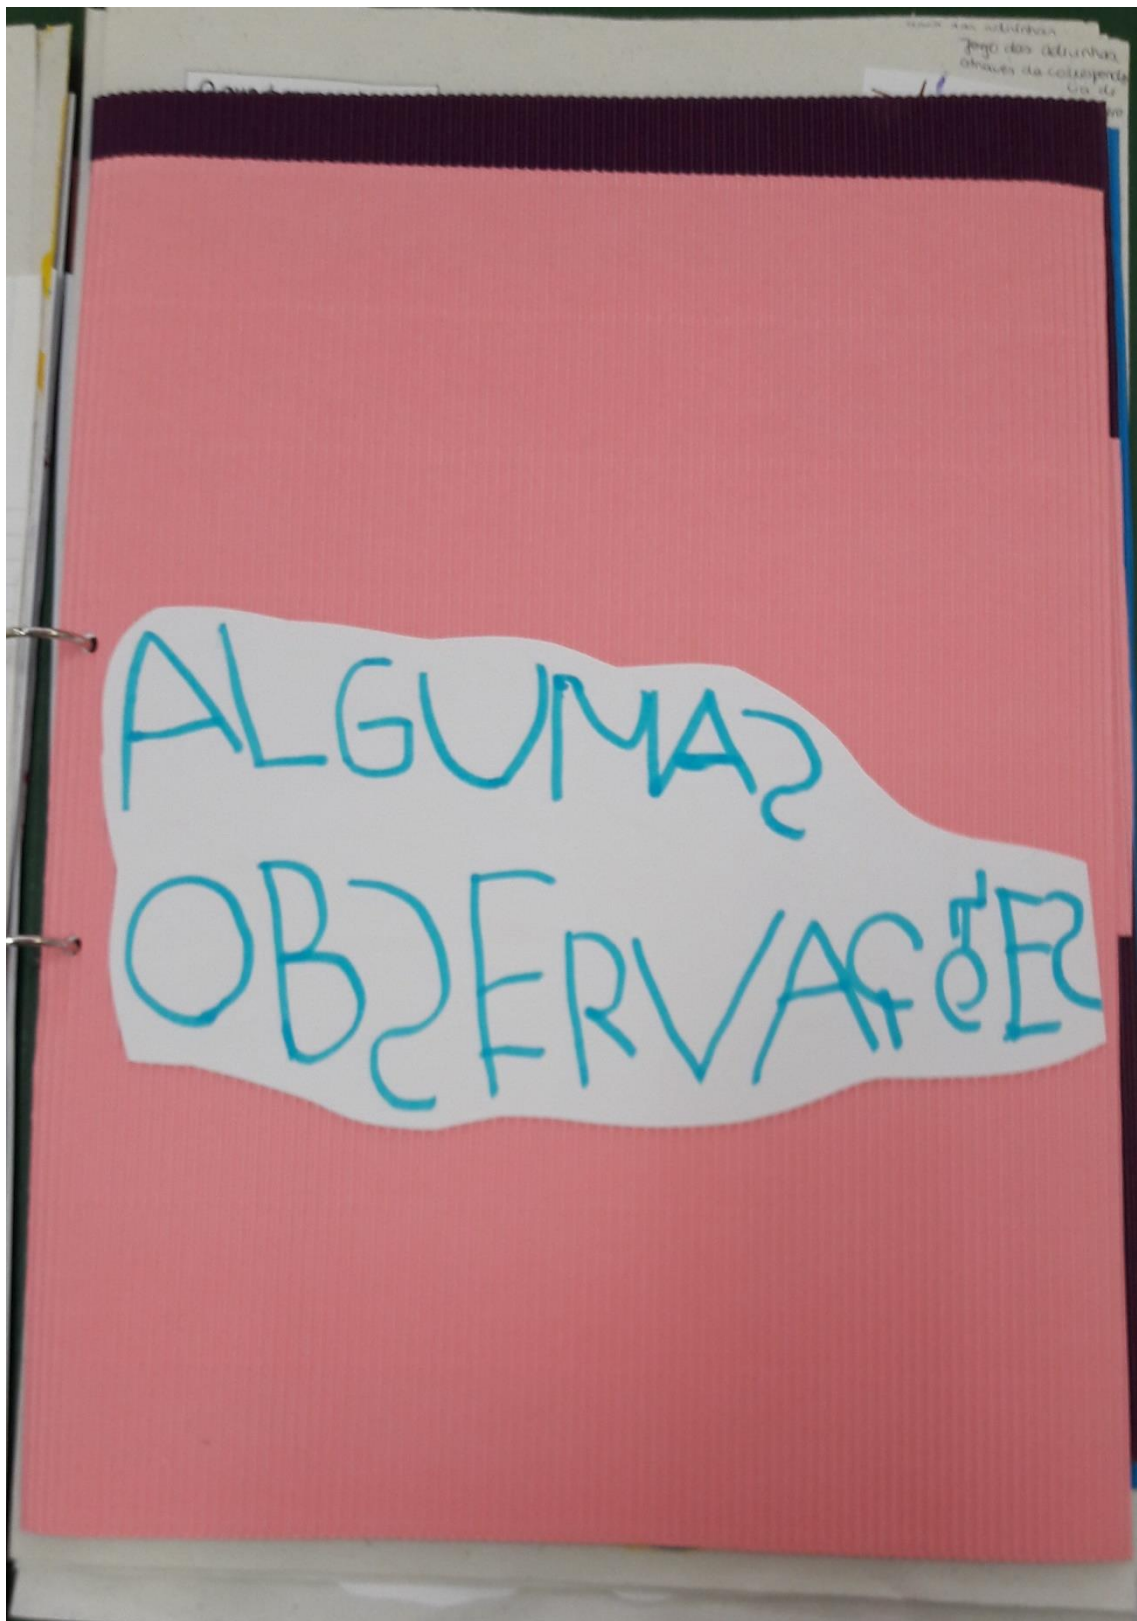 Jogo das adivinhas
através da
ALGUMAS
OBSERVAÇÕES